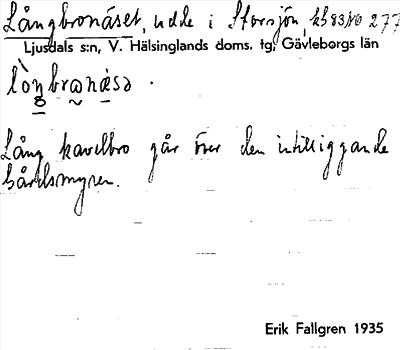 Långbronäset, udde i Storsjön, kb 83 No 277
Ljusdals s:n, V. Hälsinglands doms. tg, Gävleborgs län
Lång kavelbro går över den intilliggande
Gårdsmyren.
Erik Fallgren 1935